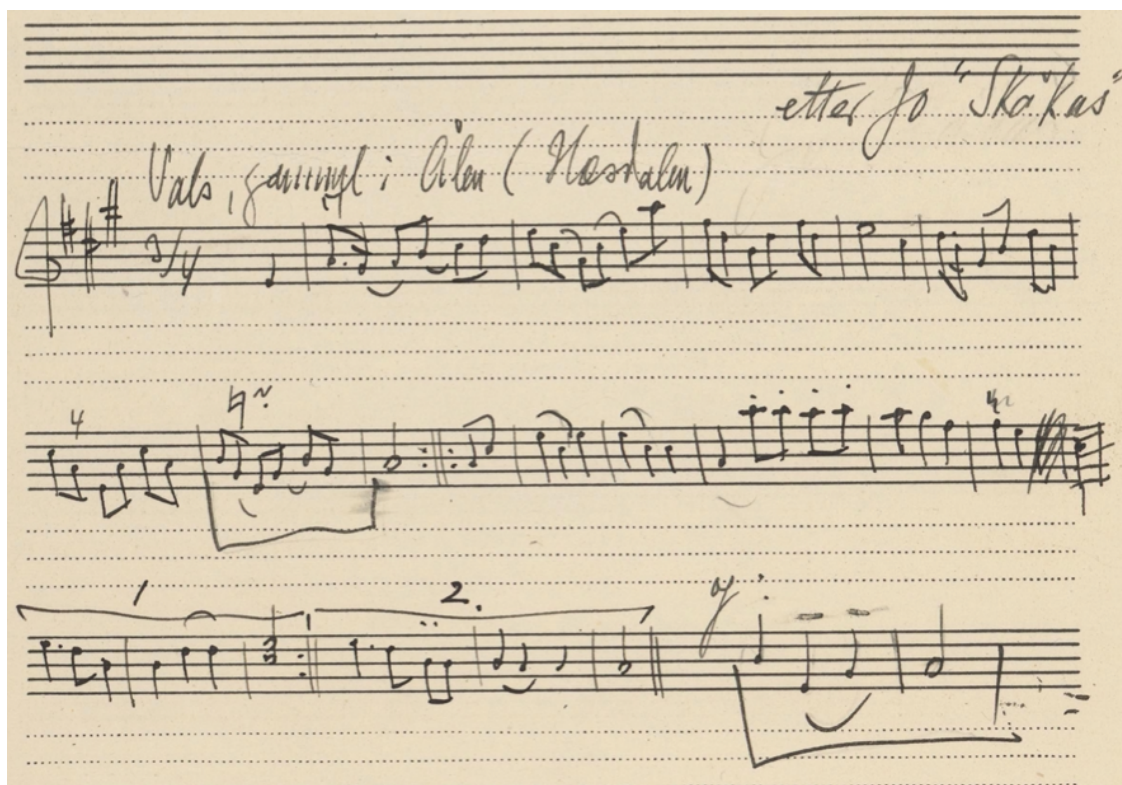 etter Jo "Skå'kus"
Vals, gammel i Ålen (Hæsdalen)
3/4
4
1
2.
og: